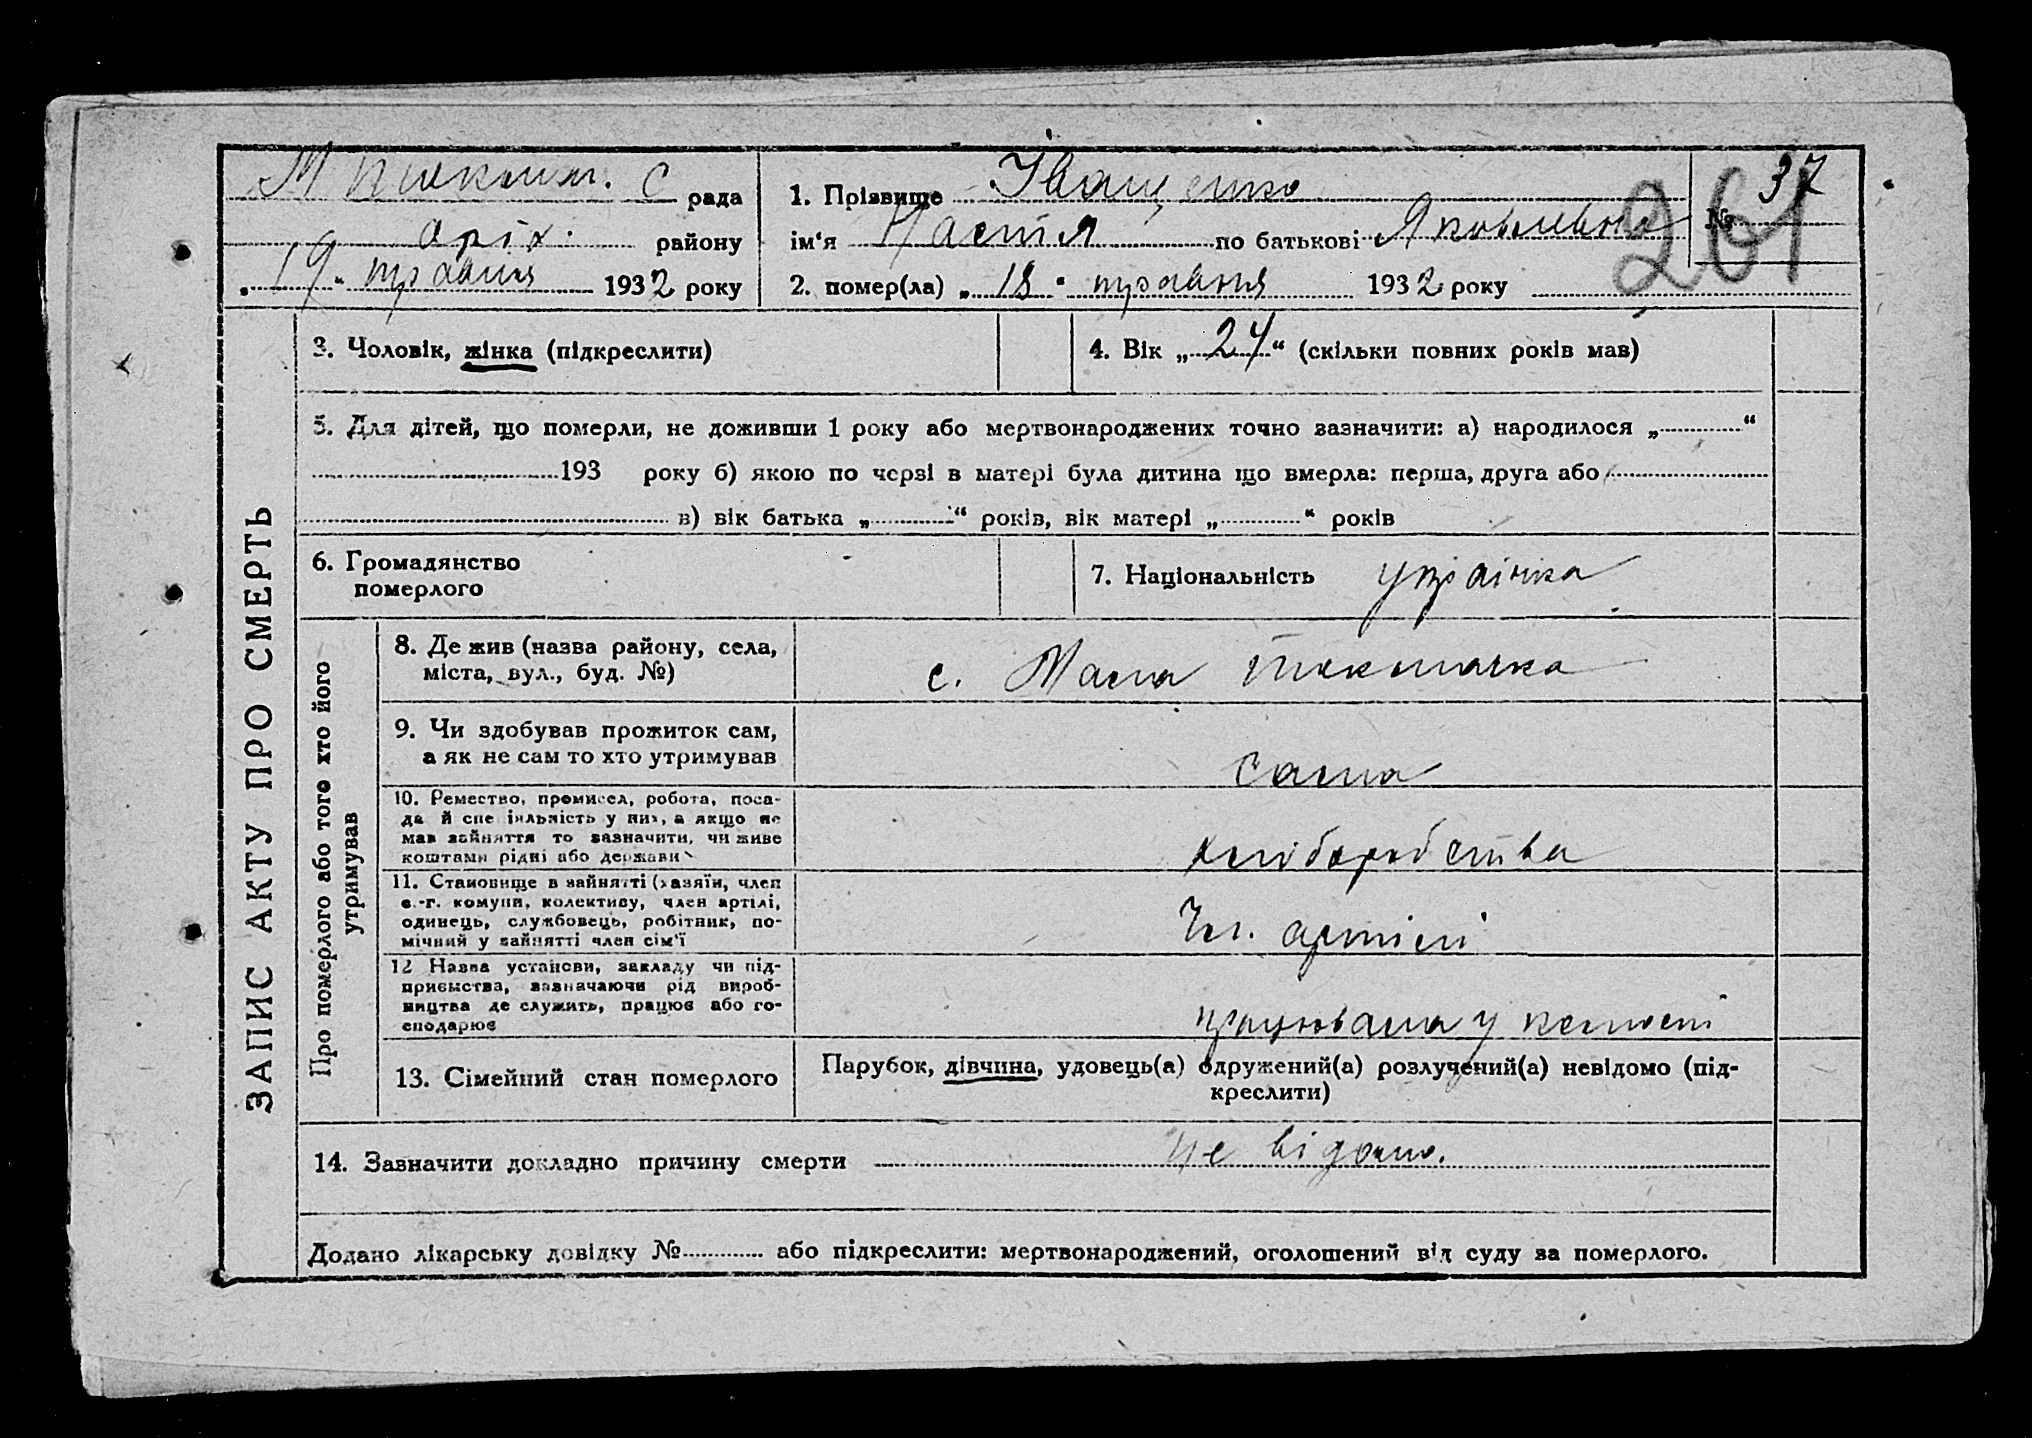 М Токмач. с рада
оріх. районy
„ 19 “ травня 1932 року
1. Прізвище Іващенко
ім'я Настя по батькові Яковлівна
2. помер(ла) „ 18 “ травня 1932 року
№ 37
261
ЗАПИС АКТУ ПРО СМЕРТЬ
3. Чоловік, жінка (підкреслити)
4. Вік „ 24 “ (скільки повних років мав)
5. Для дітей, що померли, не доживши 1 року або мертвонароджених точно зазначити: а) народилося „ “
193 року б) якою по черзі в матері була дитина що вмерла: перша, друга або
в) вік батька „ “ років, вік матері „ “ років
6. Громадянство
померлого
7. Національність українка
Про померлого або того хто його
утримував
8. Де жив (назва району, села,
міста, вул., буд. №)
с. Мала Токмачка
9. Чи здобував прожиток сам,
а як не сам то хто утримував
сама
10. Ремество, промисел, робота, поса-
да й спеціяльність у них, а якщо не
мав зайняття то зазначити, чи живе
коштами рідні або держави
хліборобства
11. Становище в зайнятті (хазяїн, член
с.-г. комуни, колективу, член артілі,
одинець, службовець, робітник, по-
мічний у зайнятті член сім'ї
Чл. артілі
12 Назва установи, закладу чи під-
приємства, зазначаючи рід вироб-
ництва де служить, працює або го-
сподарює
працювала у колгоспі
13. Сімейний стан померлого
Парубок, дівчина, удовець(а) одружений(а) розлучений(а) невідомо (під-
креслити)
14. Зазначити докладно причину смерти не відомо.
Додано лікарську довідку № або підкреслити: мертвонароджений, оголошений від суду за померлого.